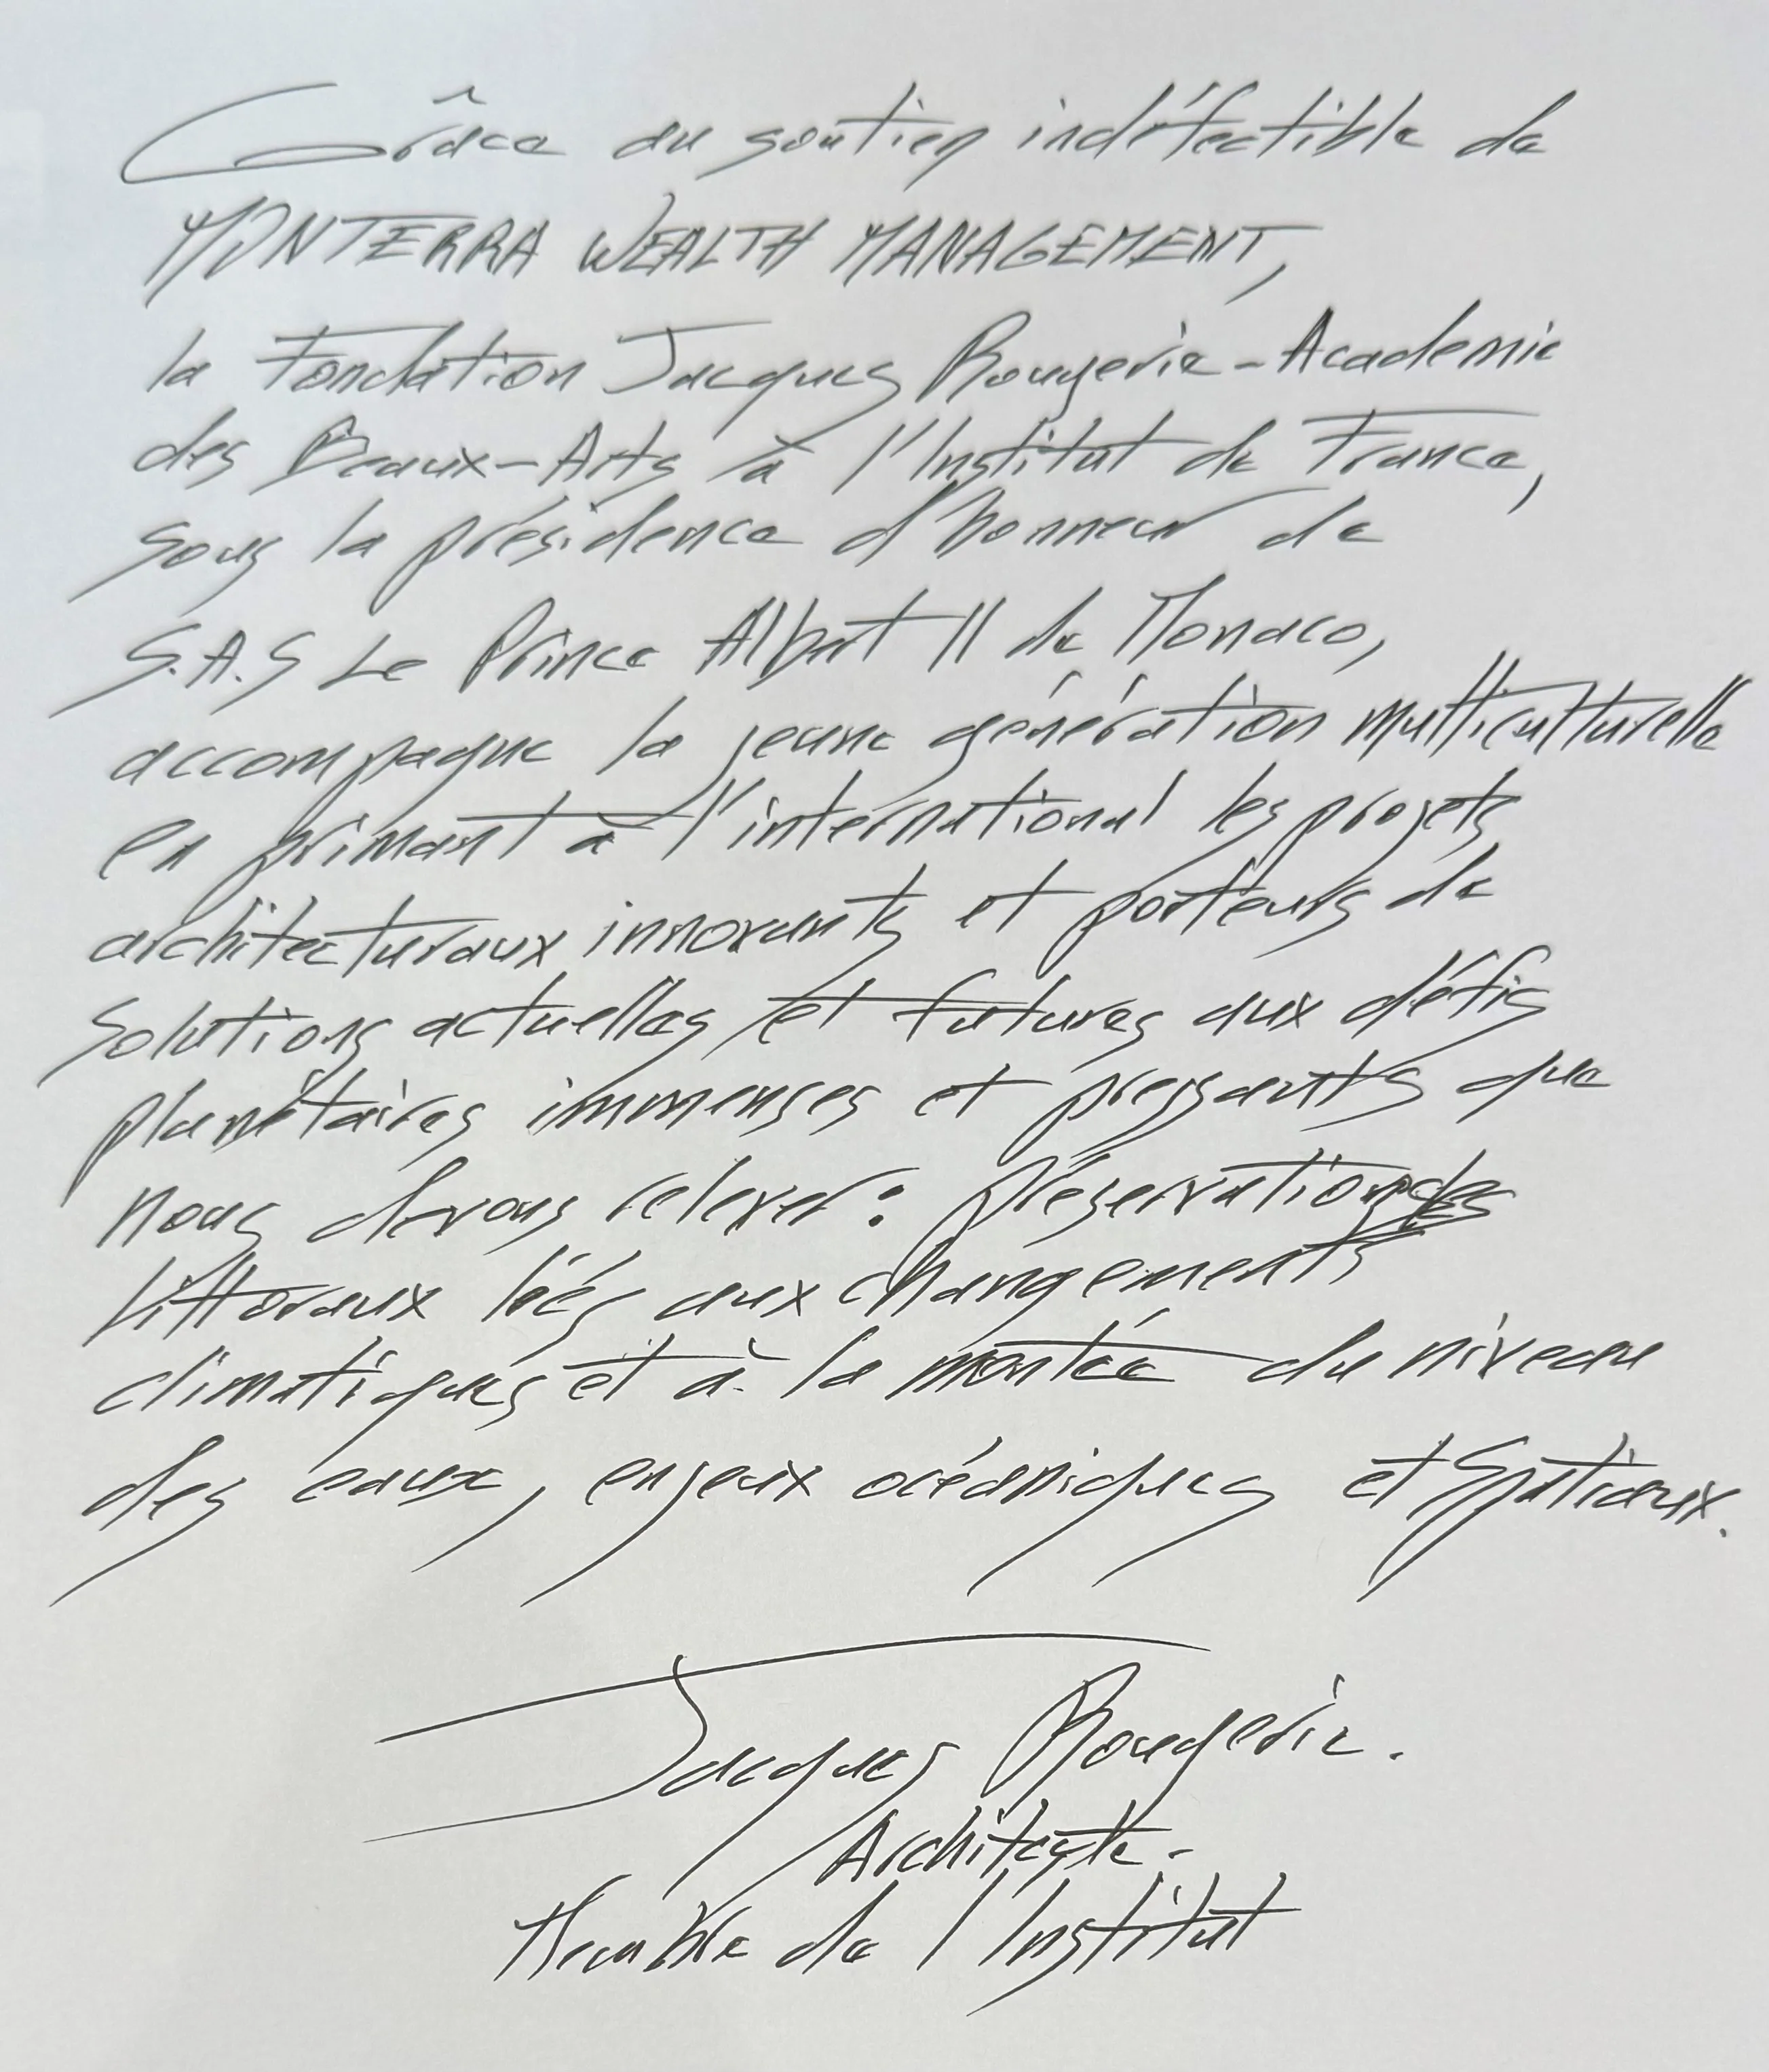 Grâce au soutien indéfectible de
MONTERRA WEALTH MANAGEMENT,
la Fondation Jacques Rougerie-Academie
des Beaux-Arts à l'Institut de France,
sous la présidence d'honneur de
S.A.S Le Prince Albert II de Monaco,
accompagne la jeune génération multiculturelle
en primant à l'international les projets
architecturaux innovants et porteurs de
solutions actuelles et futures aux défis
planétaires immenses et pressants que
nous devons relever : préservation des
littoraux liés aux changements
climatiques et à la montée du niveau
des eaux, enjeux océaniques et spatiaux.
Jacques Rougerie.
Architecte -
Membre de l'Institut